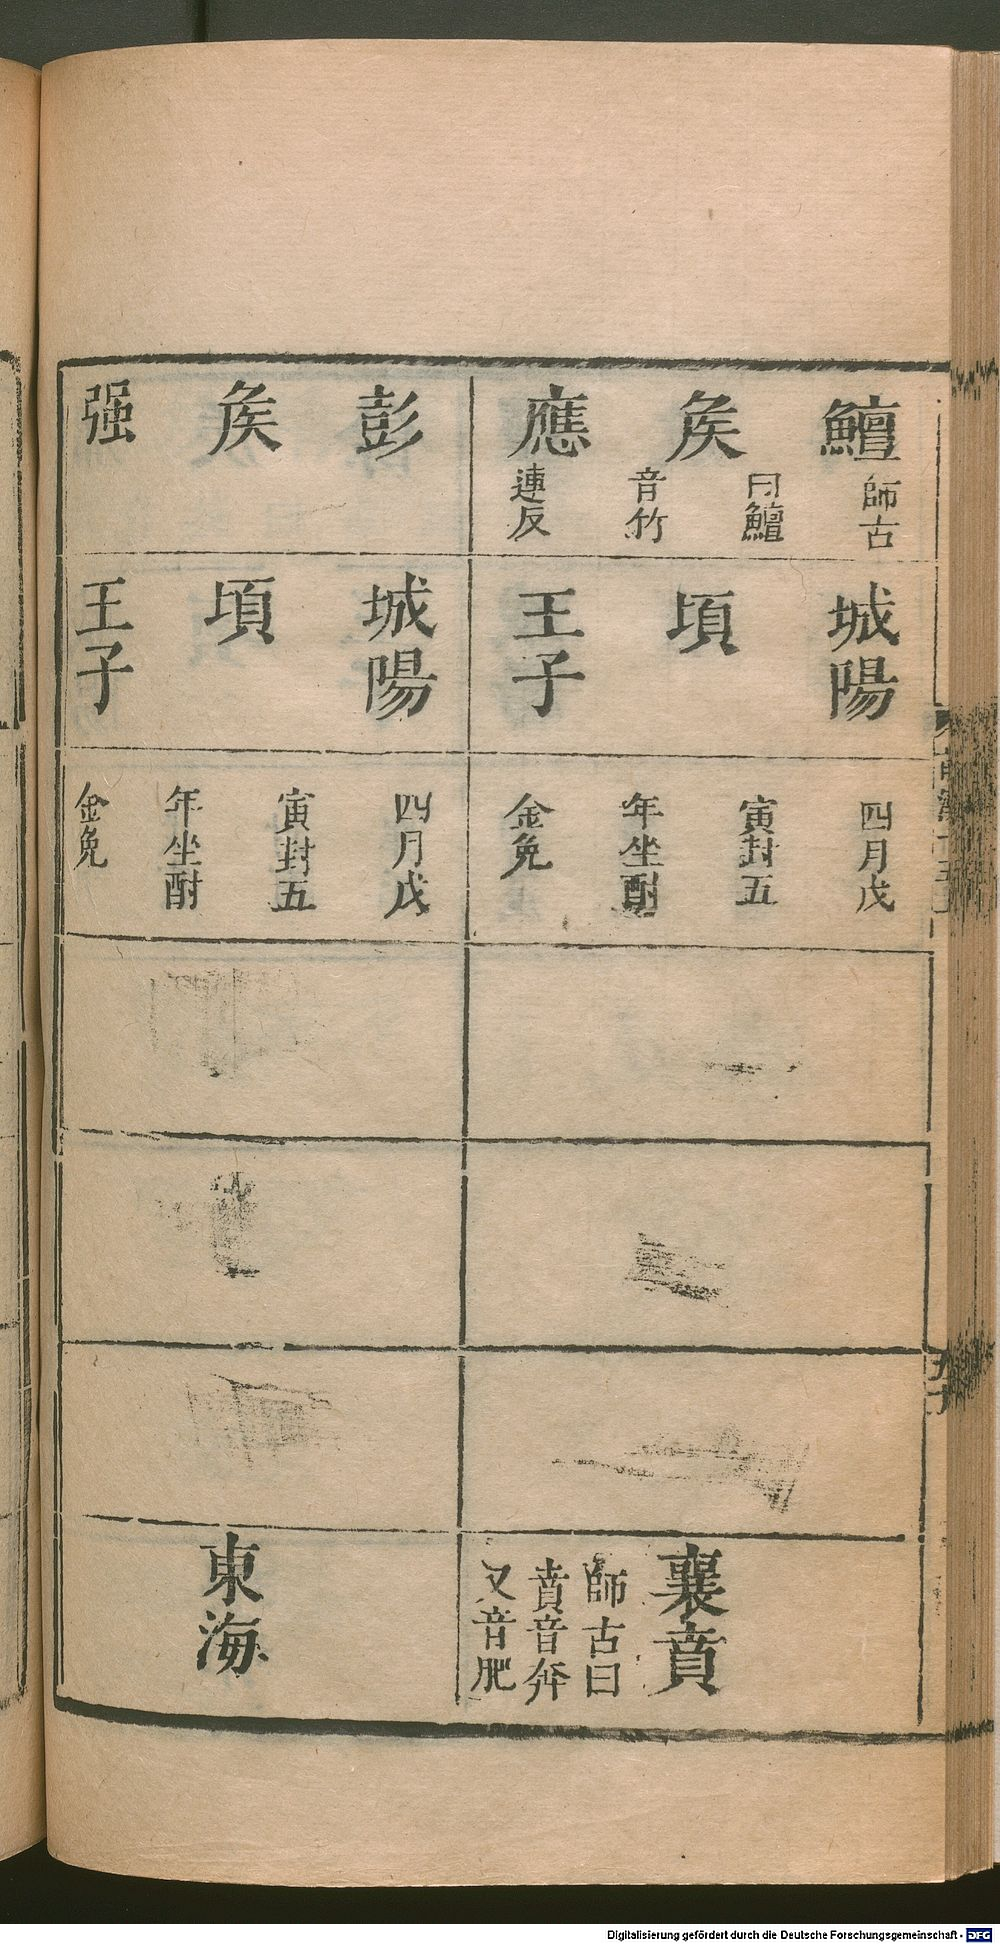 鱣
師古
侯
曰鱣
音竹
應
連反
城陽
頃
王子
四月戊
寅封五
年坐酎
金免
襄賁
師古曰
賁音奔
又音肥
彭
侯
强
城陽
頃
王子
四月戊
寅封五
年坐酎
金免
東海
Digitalisierung gefördert durch die Deutsche Forschungsgemeinschaft - DFG